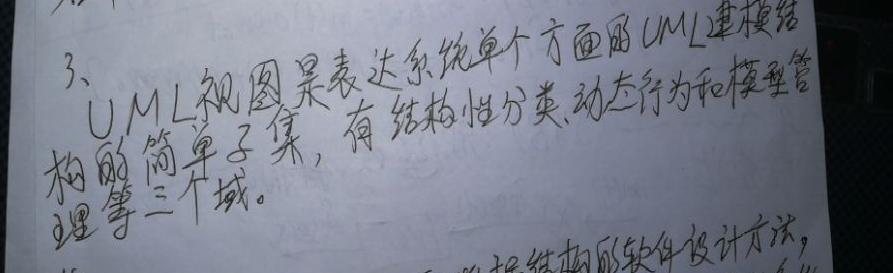 3、
UML视图是表达系统单个方面的UML建模结
构的简单子集，有结构性分类、动态行为和模型管
理等三个域。
结构的软件设计方法，